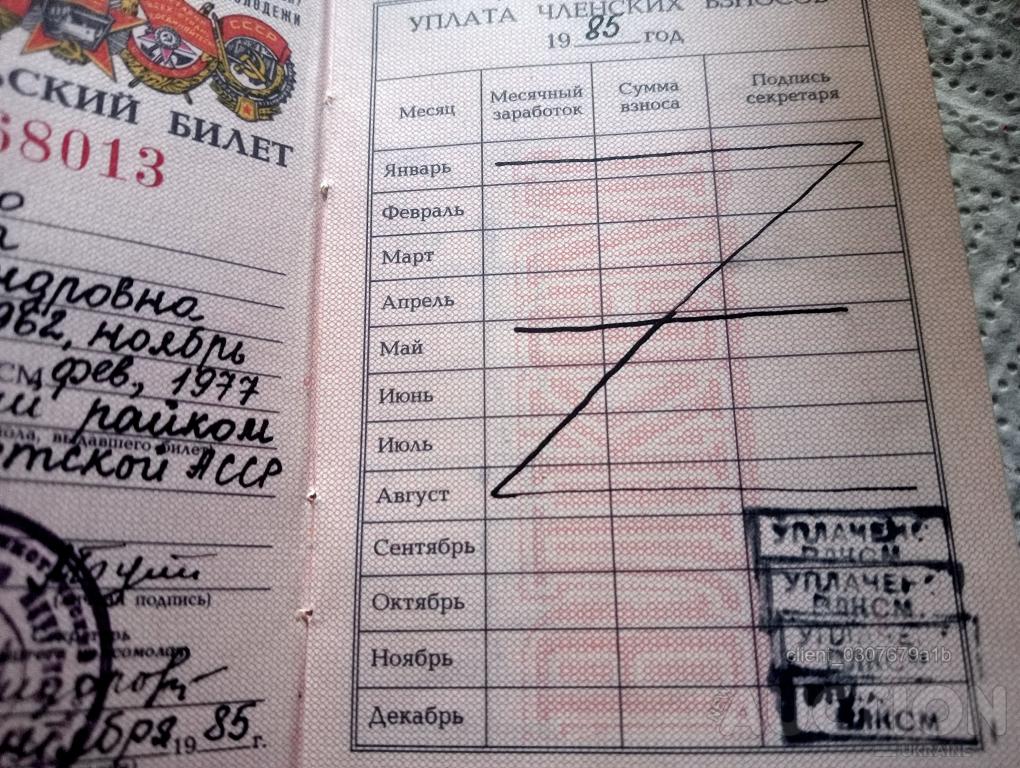 ОЛОДЕЖИ
СССР
СКИЙ БИЛЕТ
68013
о
ндровна
962, ноябрь
СМ фев, 1977
ий райком
ола, выдавшего билет)
етской АССР
подпись)
Секретарь
омола
ндров
нтября 19 85 г.
УПЛАТА ЧЛЕНСКИХ ВЗНОСОВ
19 85 ГОД
Месяц
Месячный заработок
Сумма взноса
Подпись секретаря
Январь
Февраль
Март
Апрель
Май
Июнь
Июль
Август
Сентябрь
Октябрь
Ноябрь
Декабрь
УПЛАЧЕНО
ВЛКСМ
УПЛАЧЕН
ВЛКСМ
УПЛАЧЕ
ВЛКСМ
ВЛКСМ
client_0307679a1b
AUCTION
UKRAINE